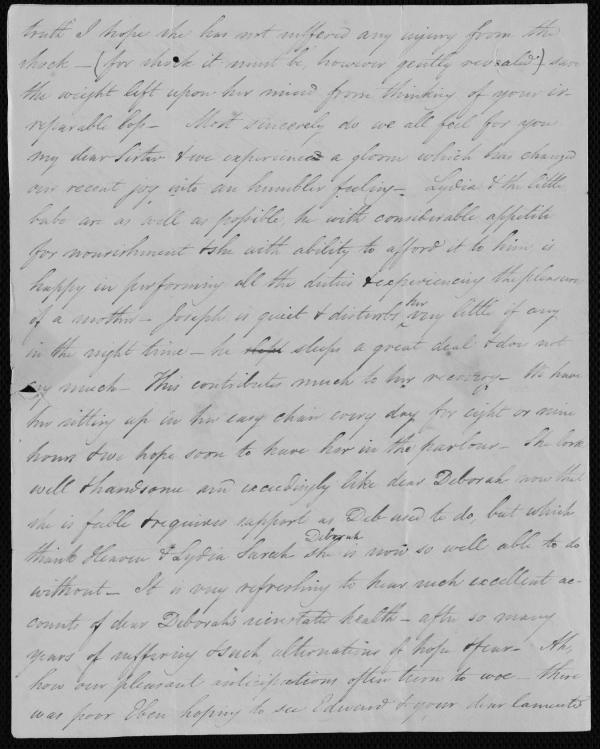 truth I hope she has not suffered any injury from the
shock – (for shock it must be, however gently revealed) save
the weight left upon her mind from thinking of your ir-
reparable loss – Most sincerely do we all feel for you
my dear Sister & we experienced a gloom which has changed
our recent joy into an humbler feeling – Lydia & the little
babe are as well as possible, he with considerable appetite
for nourishment & she with ability to afford it to him, is
happy in performing all the duties & experiencing the pleasures
of a mother – Joseph is quiet & disturbs her very little if any
in the night time – he sleeps a great deal & does not
cry much – This contributes much to her recovery – We have
her sitting up in her easy chair every day for eight or nine
hours & we hope soon to have her in the parlour – She looks
well & handsome and exceedingly like dear Deborah now that
she is feeble & requires support as Deb used to do, but which
thank Heaven & Lydia Sarah she Deborah is now so well able to do
without – It is very refreshing to hear such excellent ac-
counts of dear Deborah's reinstated health – after so many
years of suffering & such alternations of hope & fear – Ah,
how our pleasant anticipations often turn to woe – there
was poor Eben hoping to see Edward & your dear lamented